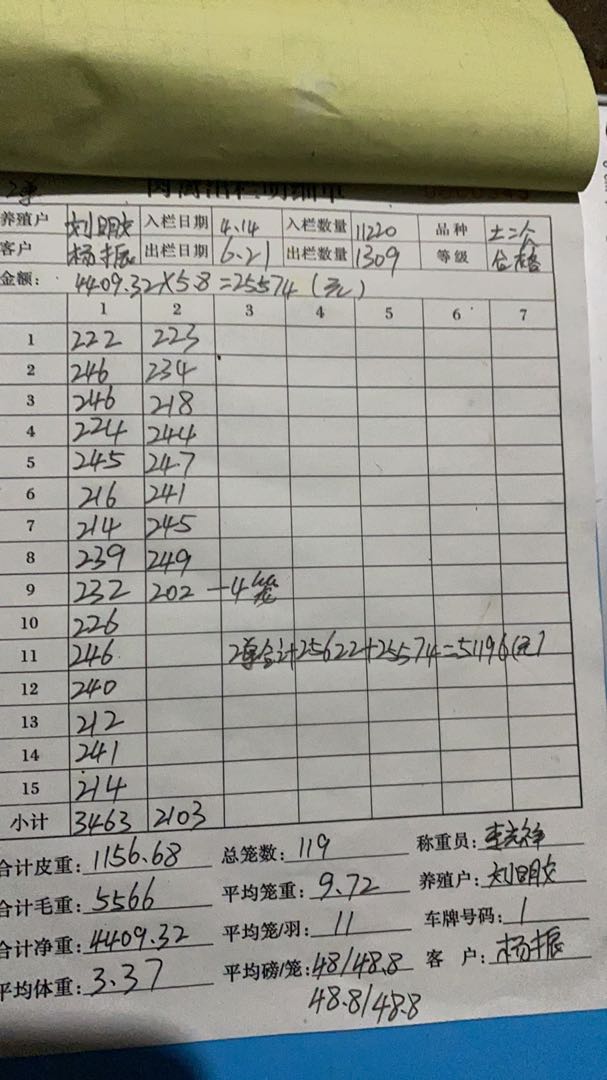 2单
养殖户 刘明成 入栏日期 4.14 入栏数量 11220 品种 土二个
客户 杨振 出栏日期 6.21 出栏数量 1309 等级 合格
金额: 4409.32×5.8=25574(元)
1 2 3 4 5 6 7
1 222 223
2 246 234
3 246 218
4 224 244
5 245 247
6 216 241
7 214 245
8 239 249
9 232 202 -4笼
10 226
11 246 2单合计25622+25574=51196(元)
12 240
13 212
14 241
15 214
小计 3463 2103
合计皮重: 1156.68 总笼数: 119 称重员:
合计毛重: 5566 平均笼重: 9.72 养殖户: 刘明成
合计净重: 4409.32 平均笼/羽: 11 车牌号码: 1
平均体重: 3.37 平均磅/笼: 48/48.8 客 户: 杨振
48.8/48.8